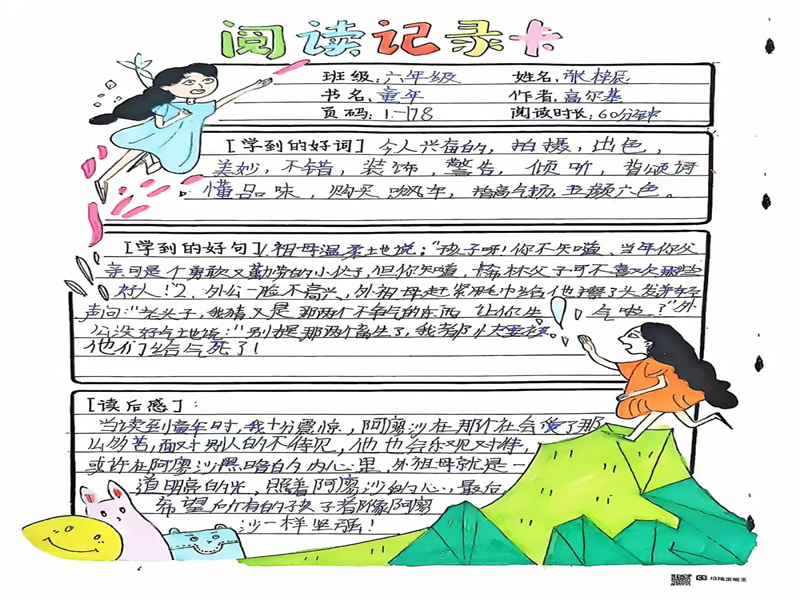 阅读记录卡
班级:六年级 姓名:张梓辰
书名:童年 作者:高尔基
页码:1-178 阅读时长:60分钟
[学到的好词] 令人兴奋的,拍摄,出色,
美妙,不错,装饰,警告,倾听,背诵词
懂品味,购买,风车,趾高气扬,五颜六色。
[学到的好句]1.祖母温柔地说:“孩子呀!你不知道,当年你父
亲可是个勇敢又勤劳的小伙子,但你知道,杨林父子可不喜欢那些
好人!”2.外公一脸不高兴,外祖母赶紧用毛巾给他擦了头发并轻
声问:“老头子,我猜又是那两个不争气的东西让你生气啦?”外
公没好气地说:“别提那两个畜生了,我都快要被
他们给气死了!
[读后感]:
当读到童年时,我十分震惊,阿廖沙在那个社会受了那
么劳苦,面对别人的不待见,他也会乐观对待,
或许在阿廖沙黑暗的内心里,外祖母就是一
道明亮的光,照着阿廖沙的内心,最后
希望所有的孩子看像阿廖
沙一样坚强!